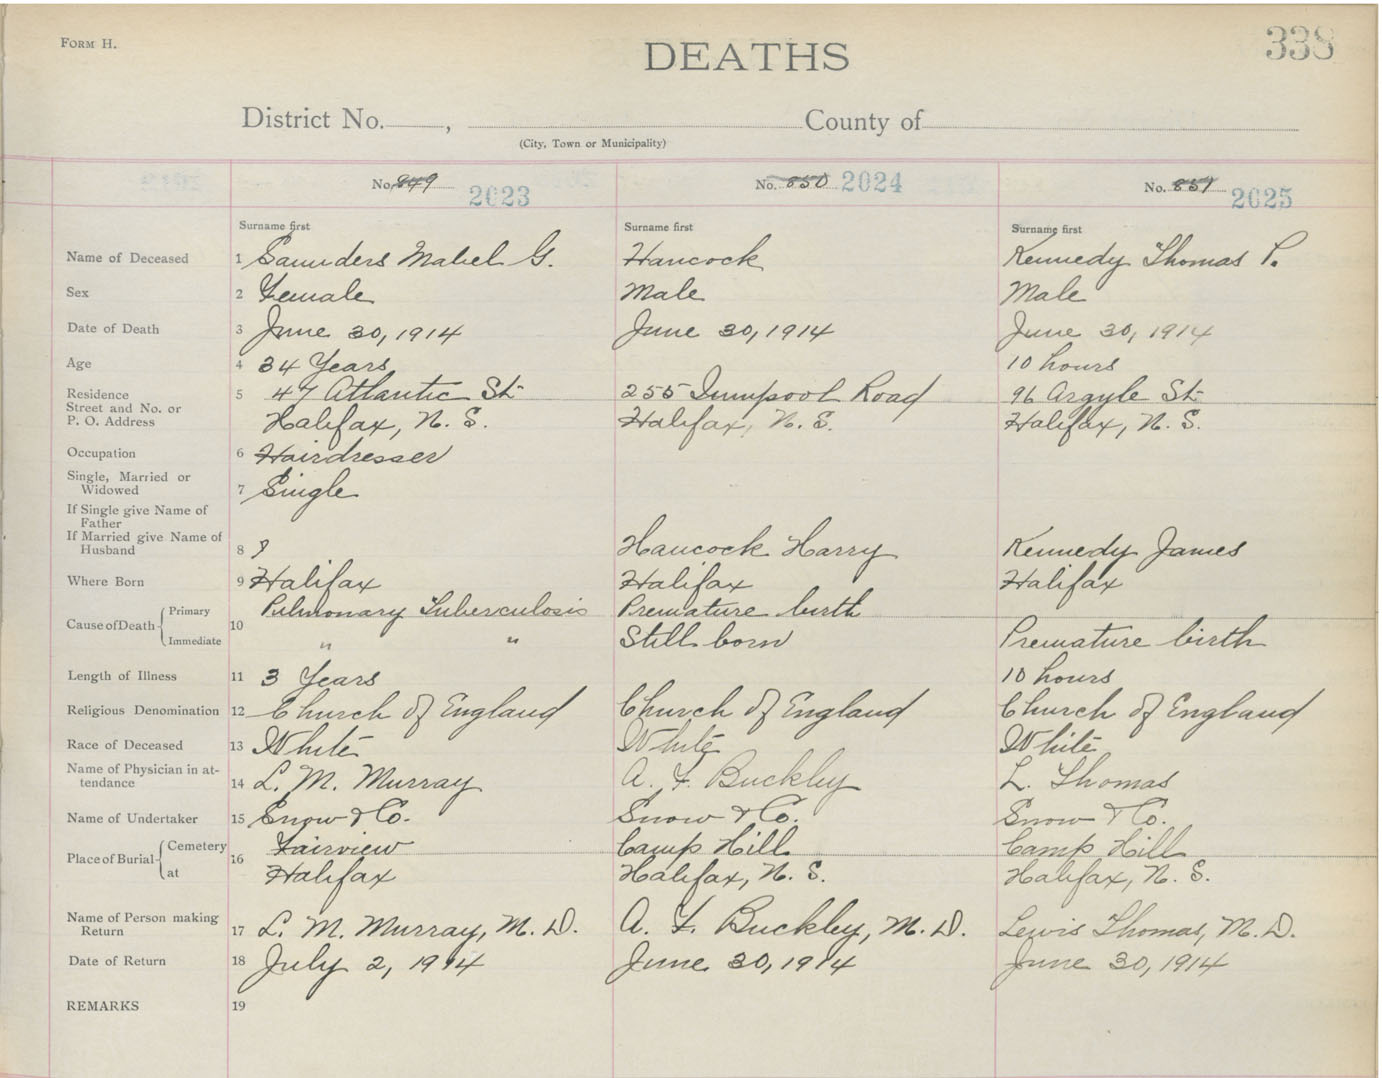 FORM H.
338
DEATHS
District No. , County of
(City, Town or Municipality)
No. 849 2023
No. 850 2024
No. 851 2025
Surname first Surname first Surname first
Name of Deceased 1 Saunders Mabel G. Hancock Kennedy Thomas P.
Sex 2 Female Male Male
Date of Death 3 June 30, 1914 June 30, 1914 June 30, 1914
Age 4 34 Years 10 hours
Residence 5 47 Atlantic St. 255 Road 96 Argyle St.
Street and No. or
P. O. Address Halifax, N. S. Halifax, N. S. Halifax, N. S.
Occupation 6 Hairdresser
Single, Married or
Widowed 7 Single
If Single give Name of
Father
If Married give Name of
Husband 8 Hancock Harry Kennedy James
Where Born 9 Halifax Halifax Halifax
Cause of Death 10 Primary Pulmonary Tuberculosis Premature birth
Immediate " " Still born Premature birth
Length of Illness 11 3 Years 10 hours
Religious Denomination 12 Church of England Church of England Church of England
Race of Deceased 13 White White White
Name of Physician in at-
tendance 14 L. M. Murray A. F. Buckley L. Thomas
Name of Undertaker 15 Snow & Co. Snow & Co. Snow & Co.
Place of Burial 16 Cemetery Fairview Camp Hill Camp Hill
at Halifax Halifax, N. S. Halifax, N. S.
Name of Person making
Return 17 L. M. Murray, M. D. A. F. Buckley, M. D. Lewis Thomas, M. D.
Date of Return 18 July 2, 1914 June 30, 1914 June 30, 1914
REMARKS 19